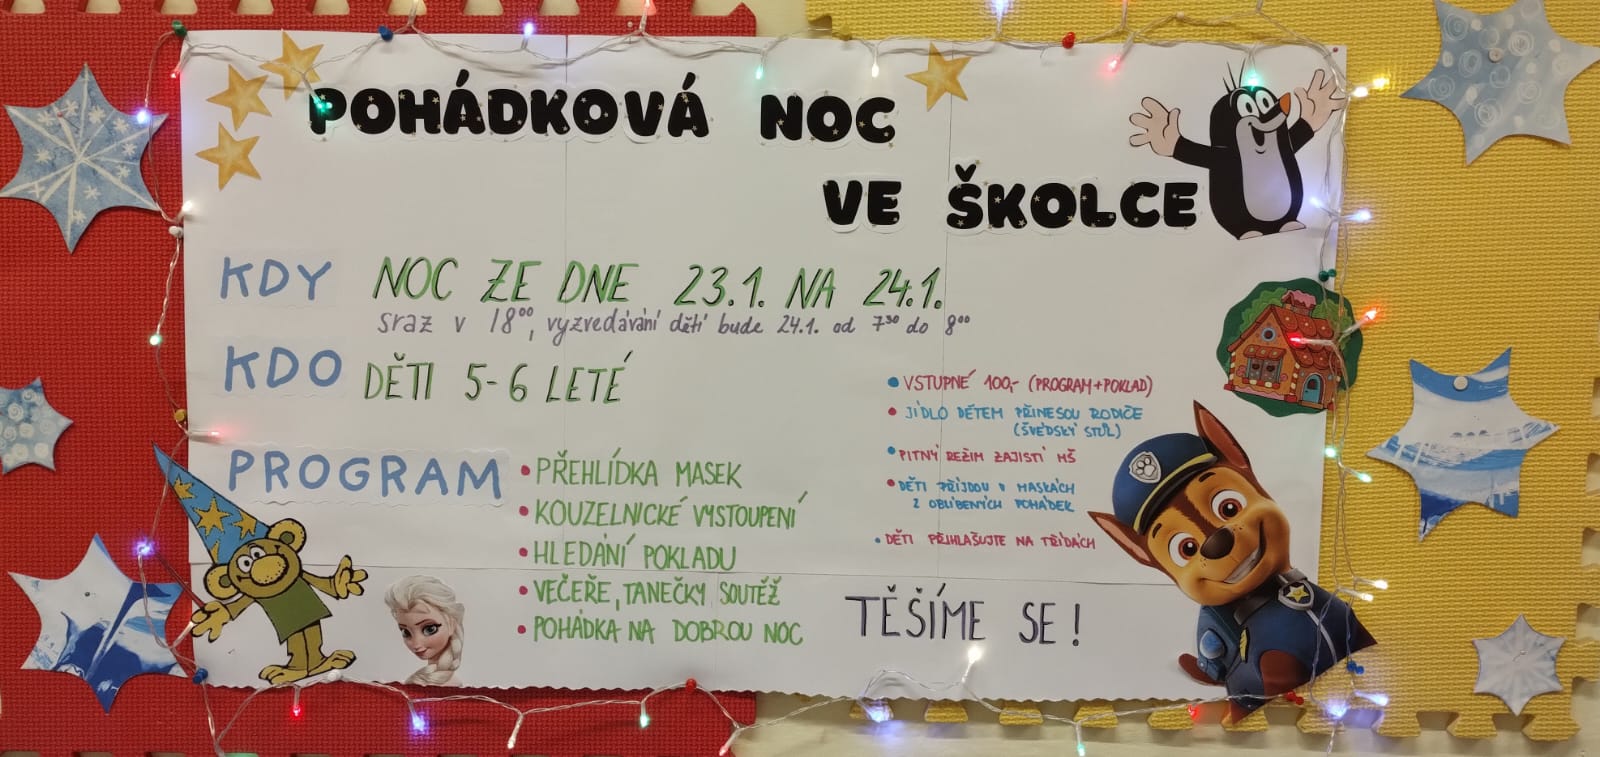 POHÁDKOVÁ NOC
VE ŠKOLCE
KDY NOC ZE DNE 23.1. NA 24.1.
sraz v 18⁰⁰, vyzvedávání dětí bude 24.1. od 7³⁰ do 8⁰⁰
KDO DĚTI 5-6 LETÉ
PROGRAM
• PŘEHLÍDKA MASEK
• KOUZELNICKÉ VYSTOUPENÍ
• HLEDÁNÍ POKLADU
• VEČEŘE, TANEČKY SOUTĚŽ
• POHÁDKA NA DOBROU NOC
• VSTUPNÉ 100,- (PROGRAM+POKLAD)
• JÍDLO DĚTEM PŘINESOU RODIČE
(ŠVÉDSKÝ STŮL)
• PITNÝ REŽIM ZAJISTÍ MŠ
• DĚTI PŘIJDOU V MASKÁCH
Z OBLÍBENÝCH POHÁDEK
• DĚTI PŘIHLAŠUJTE NA TŘÍDÁCH
TĚŠÍME SE!